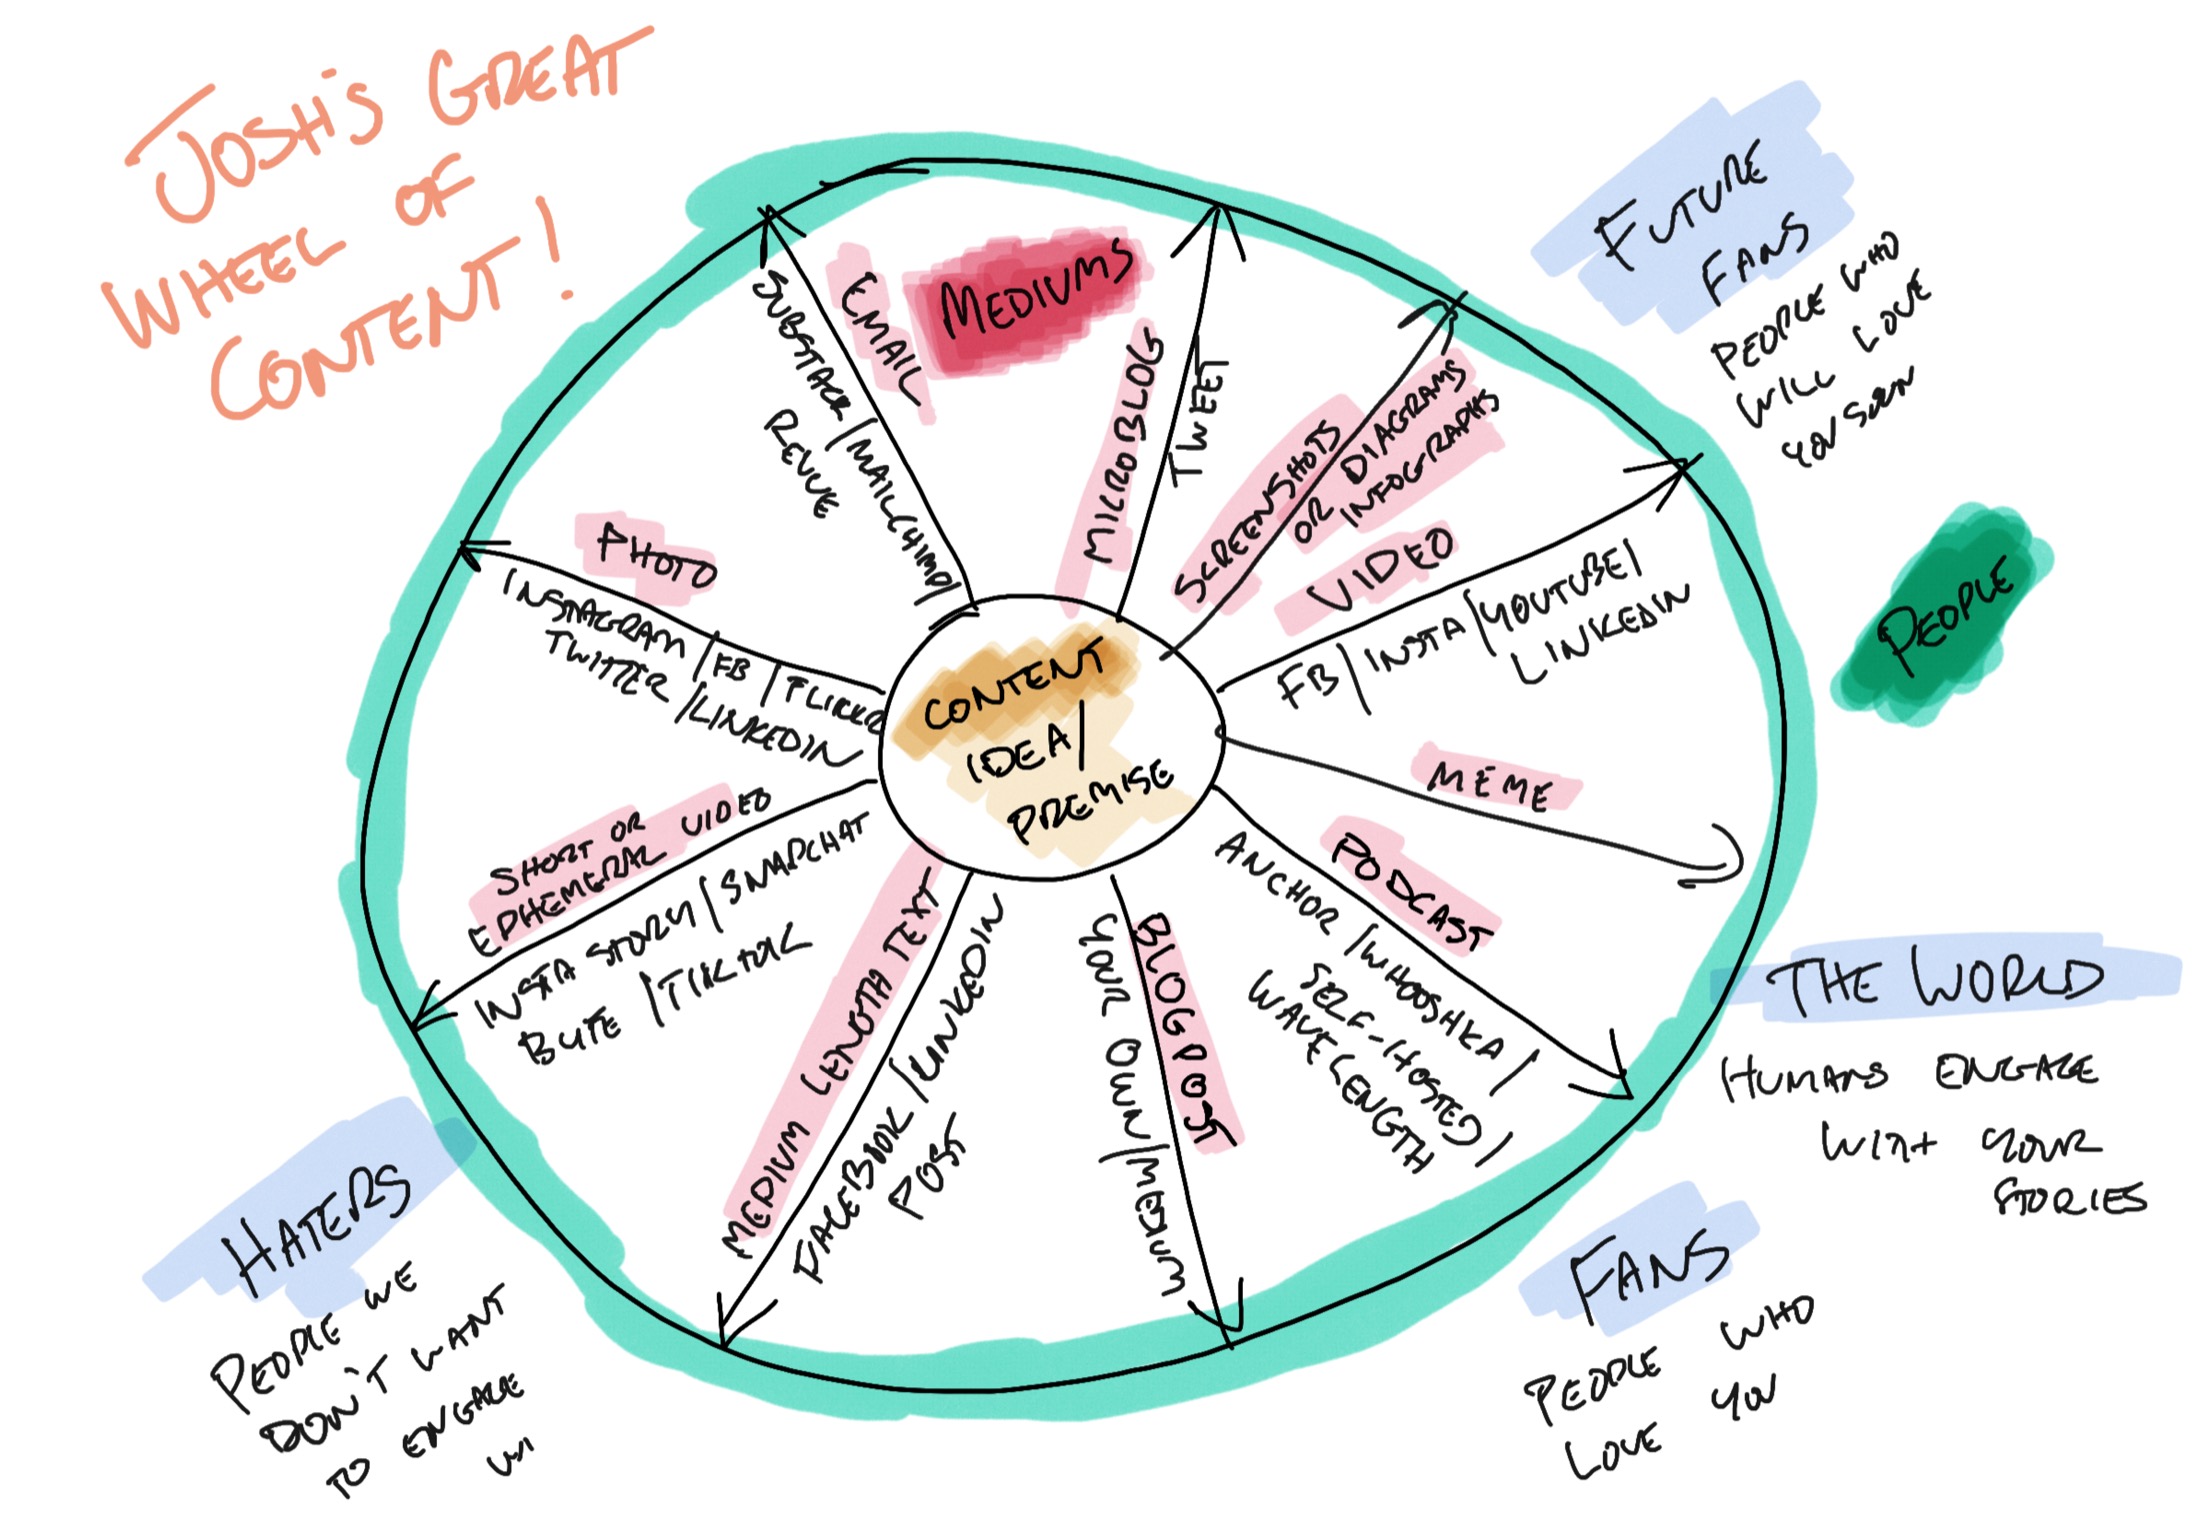 JOSH'S GREAT
WHEEL OF
CONTENT!
MEDIUMS
EMAIL
SUBSTACK/MAILCHIMP/
REVUE
MICROBLOG
TWEET
SCREENSHOTS
OR DIAGRAMS
INFOGRAPHS
VIDEO
FB/INSTA/YOUTUBE/
LINKEDIN
MEME
PODCAST
ANCHOR/WHOOSHKA/
SELF-HOSTED/
WAVELENGTH
BLOG POST
YOUR OWN/MEDIUM
MEDIUM LENGTH TEXT
FACEBOOK/LINKEDIN
POST
SHORT OR
EPHEMERAL VIDEO
INSTA STORY/SNAPCHAT
BYTE/TIKTOK
PHOTO
INSTAGRAM/FB/FLICKR
TWITTER/LINKEDIN
CONTENT
IDEA/
PREMISE
FUTURE
FANS
PEOPLE WHO
WILL LOVE
YOU SOON
PEOPLE
THE WORLD
HUMANS ENGAGE
WITH YOUR
STORIES
FANS
PEOPLE WHO
LOVE YOU
HATERS
PEOPLE WE
DON'T WANT
TO ENGAGE